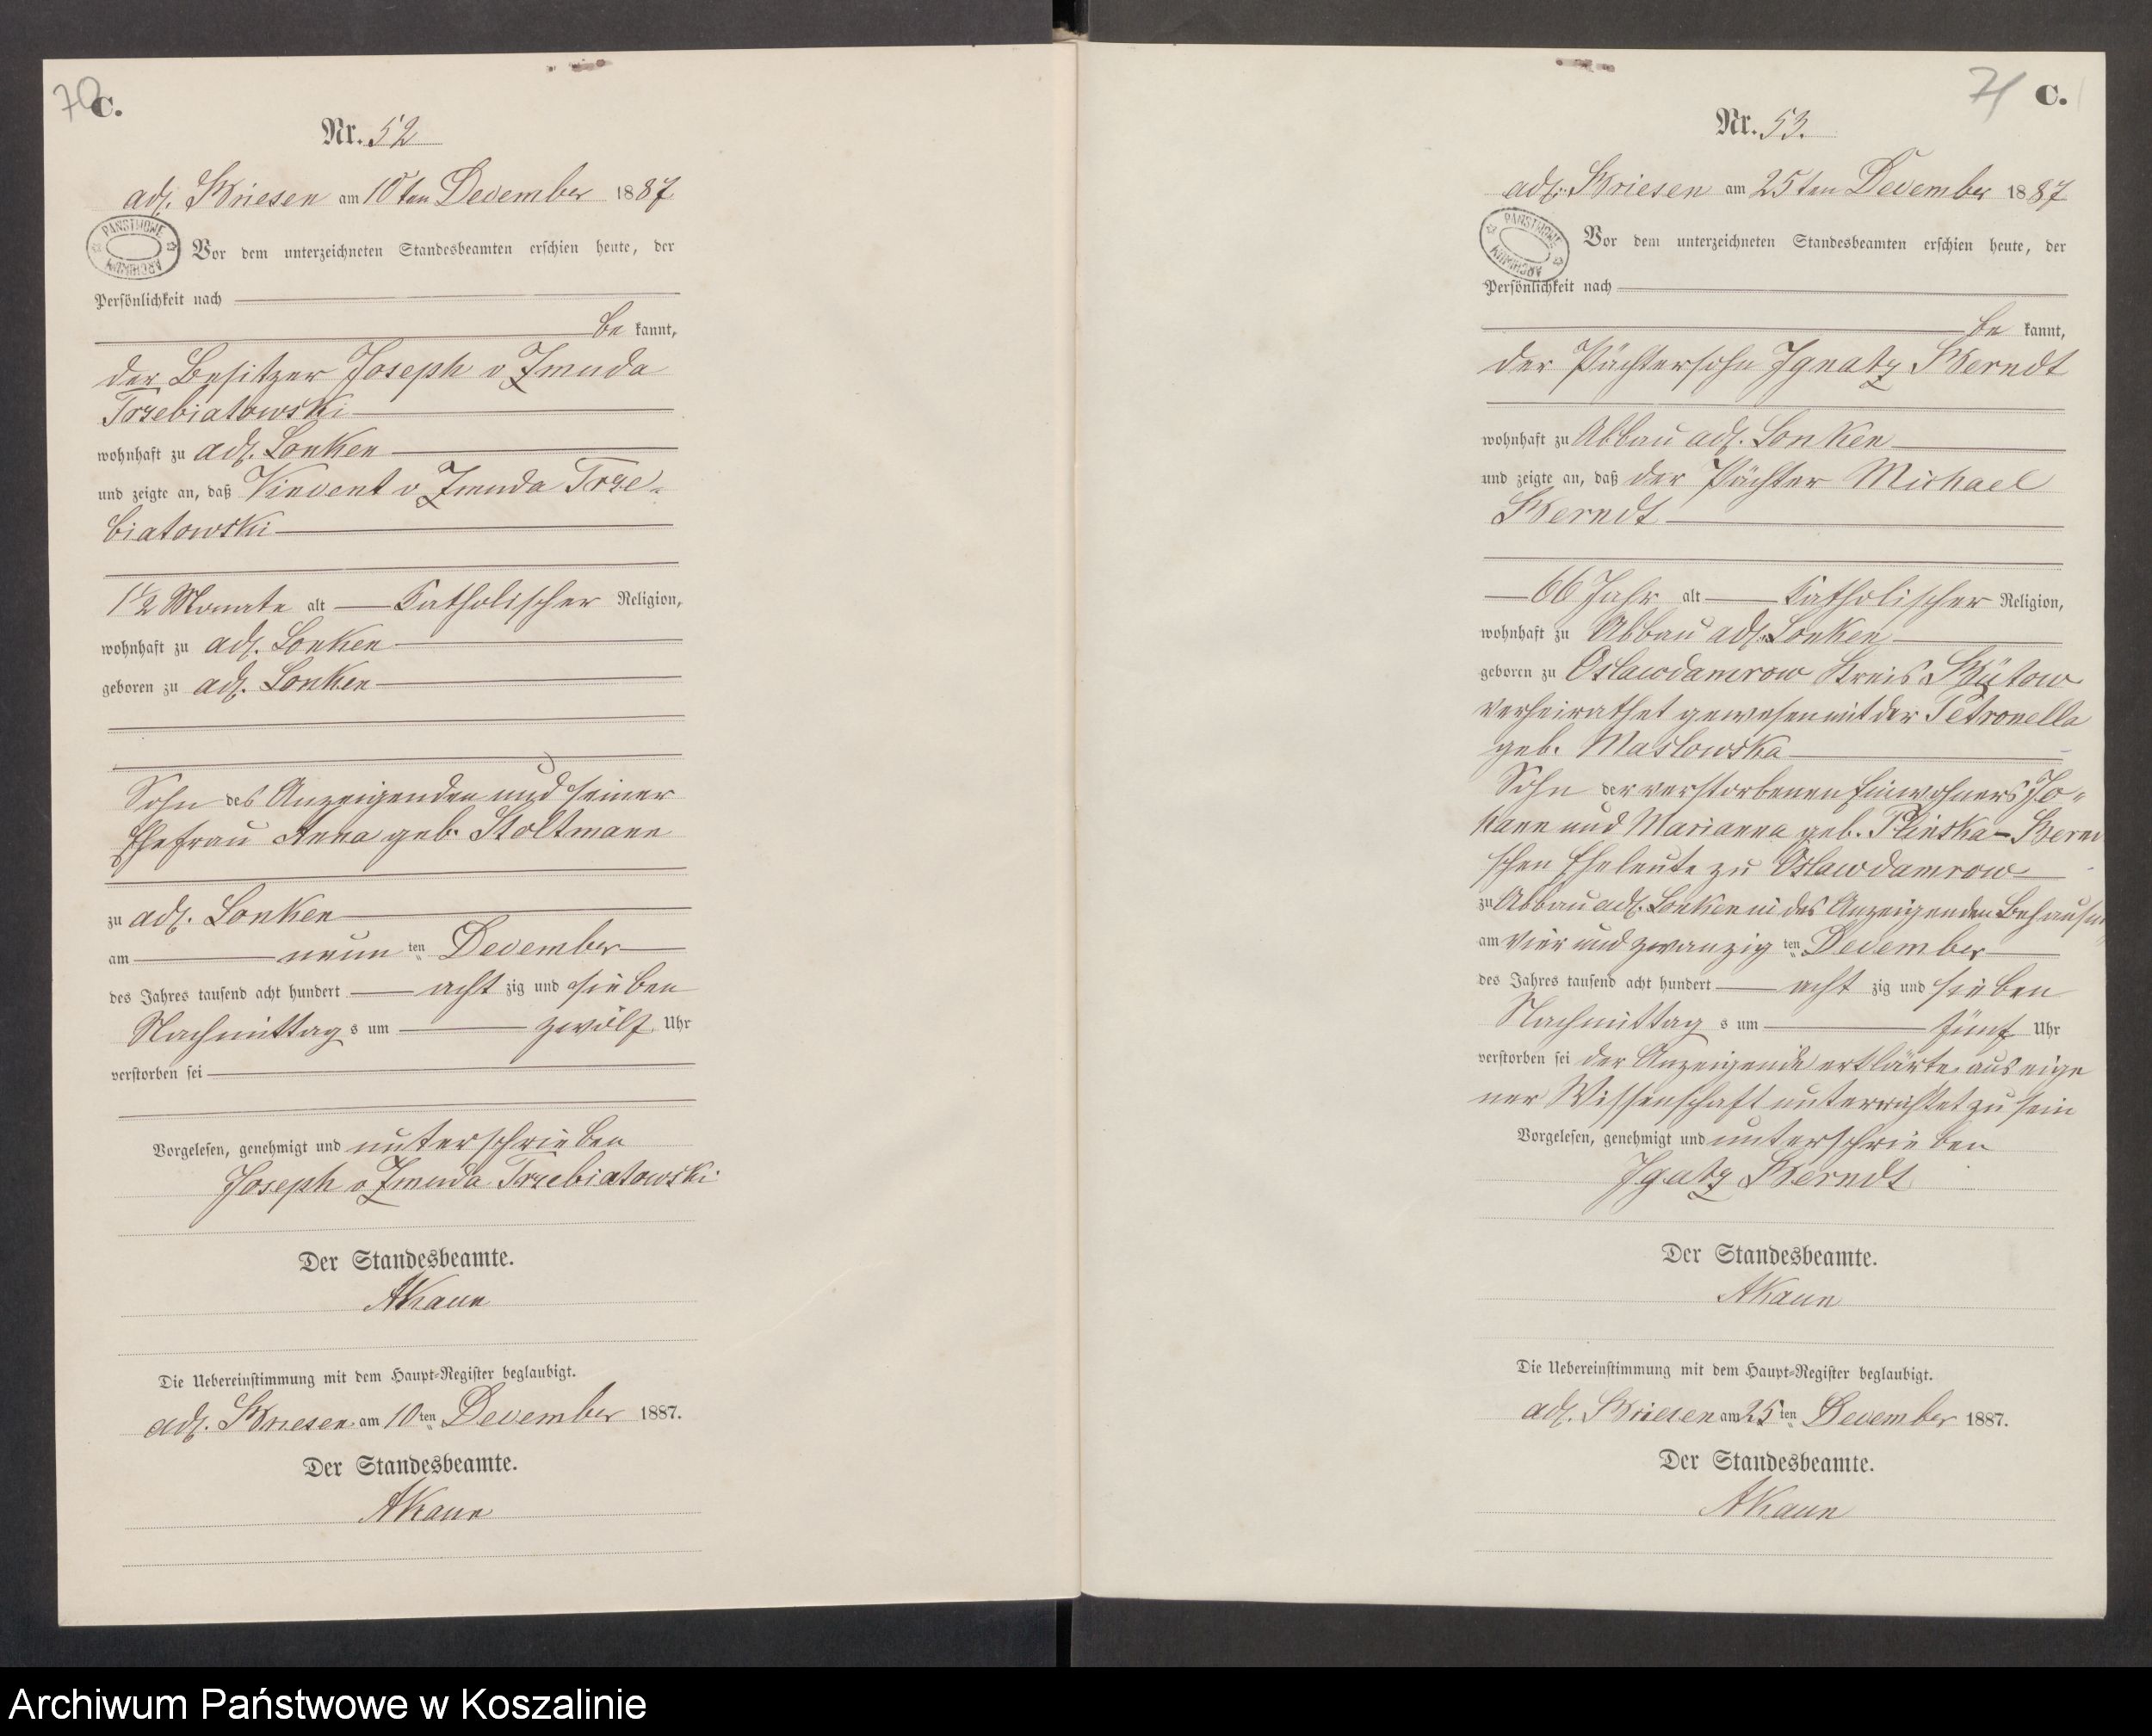 70
C.
Nr. 52
adl. Briesen am 10ten December 1887
PAŃSTWOWE ARCHIWUM
Vor dem unterzeichneten Standesbeamten erschien heute, der
Persönlichkeit nach
be kannt,
der Besitzer Joseph v Zmuda
Trzebiatowski
wohnhaft zu adl. Lonken
und zeigte an, daß Vincent v Zmuda Trze-
biatowski
1½ Monate alt katholischer Religion,
wohnhaft zu adl. Lonken
geboren zu adl. Lonken
Sohn des Anzeigenden und seiner
Ehefrau Anna geb. Stoltmann
zu adl. Lonken
am neun ten December
des Jahres tausend acht hundert acht zig und sieben
Nachmittag s um zwölf Uhr
verstorben sei
Vorgelesen, genehmigt und unterschrieben
Joseph v Zmuda Trzebiatowski
Der Standesbeamte.
AKaun
Die Uebereinstimmung mit dem Haupt-Register beglaubigt.
adl. Briesen am 10ten December 1887.
Der Standesbeamte.
AKaun
71
C.
Nr. 53.
adl. Briesen am 25ten December 1887
PAŃSTWOWE ARCHIWUM
Vor dem unterzeichneten Standesbeamten erschien heute, der
Persönlichkeit nach
be kannt,
der Pächtersohn Ignatz Berndt
wohnhaft zu Abbau adl. Lonken
und zeigte an, daß der Pächter Michael
Berndt
66 Jahr alt katholischer Religion,
wohnhaft zu Abbau adl. Lonken
geboren zu Oslawdamrow Kreis Bütow
verheirathet gewesen mit der Petronella
geb. Maslowska
Sohn der verstorbenen Einwohners Jo-
hann und Marianna geb. Plinska-Bern
schen Eheleute zu Oslawdamrow
zu Abbau adl. Lonken in des Anzeigenden Behausun
am vier und zwanzig ten December
des Jahres tausend acht hundert acht zig und sieben
Nachmittag s um fünf Uhr
verstorben sei der Anzeigende erklärte aus eige
ner Wissenschaft unterrichtet zu sein
Vorgelesen, genehmigt und unterschrieben
Igatz Berndt
Der Standesbeamte.
AKaun
Die Uebereinstimmung mit dem Haupt-Register beglaubigt.
adl. Briesen am 25ten December 1887.
Der Standesbeamte.
AKaun
Archiwum Państwowe w Koszalinie